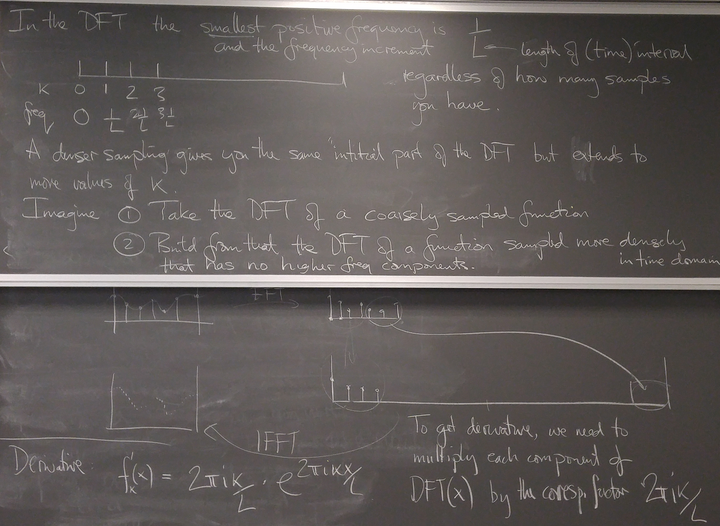 In the DFT the smallest positive frequency is 1/L
and the frequency increment
length of (time) interval
regardless of how many samples
you have.
K 0 1 2 3
freq 0 1/L 2 1/L 3 1/L
A denser sampling gives you the same initial part of the DFT but extends to
more values of K.
Imagine ① Take the DFT of a coarsely sampled function
② Build from that the DFT of a function sampled more densely
that has no higher freq components. in time domain
FFT
IFFT
To get derivative, we need to
multiply each component of
DFT(x) by the corresp. factor 2πik/L
Derivative: f'ₖ(x) = 2πik/L · e^(2πikx/L)